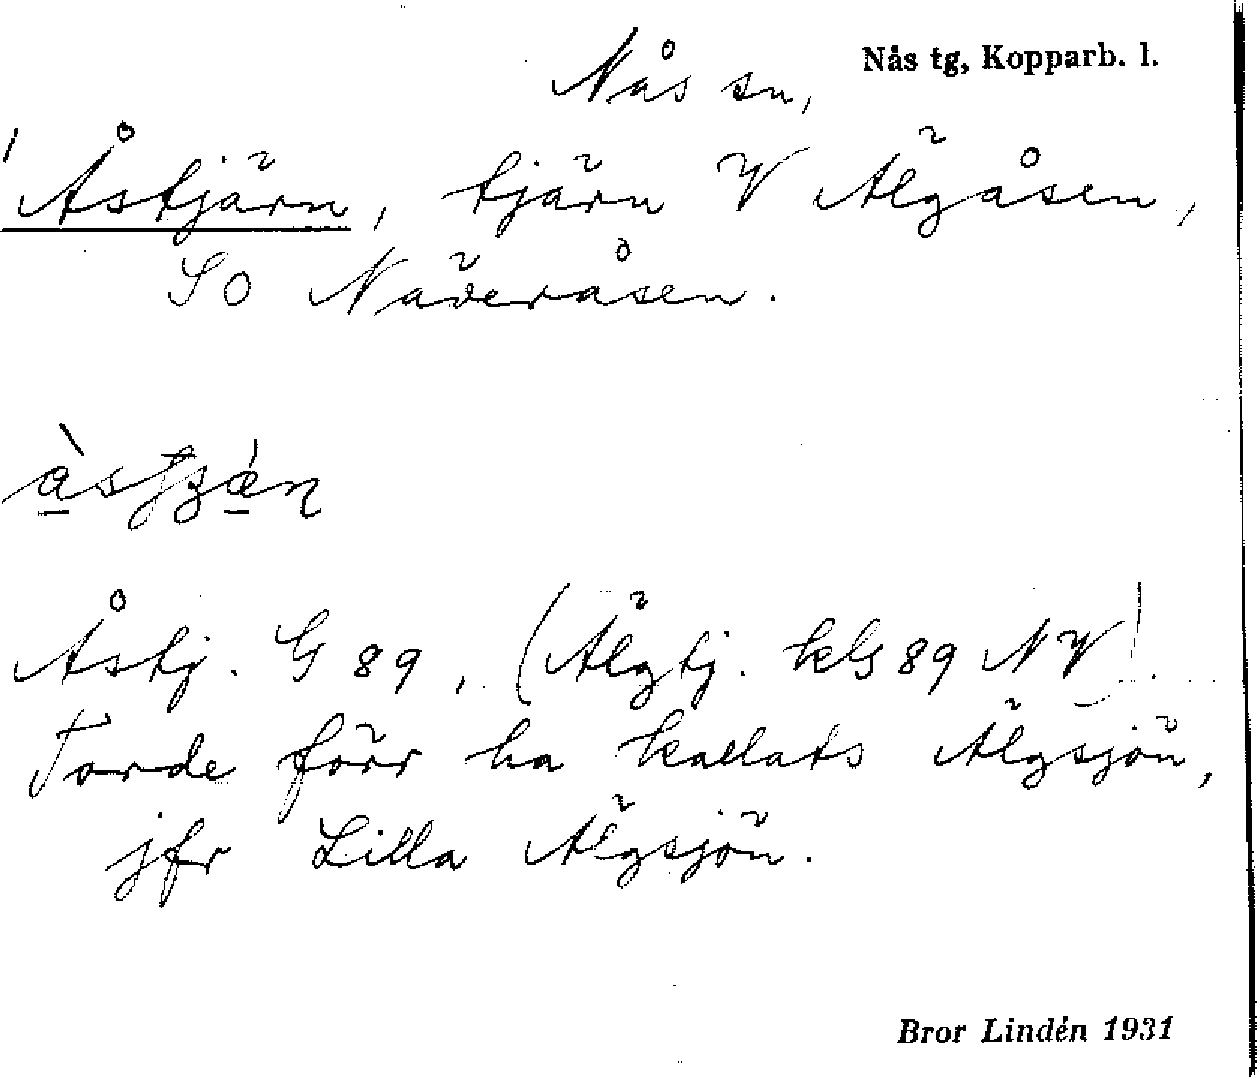 Nås sn, Nås tg, Kopparb. l.
Åstjärn, tjärn V Älgåsen,
SO Näveråsen.
Åstj. G 89, (Älgtj. kG 89 NV).
Torde förr ha kallats Älgsjön,
jfr Lilla Älgsjön.
Bror Lindén 1931